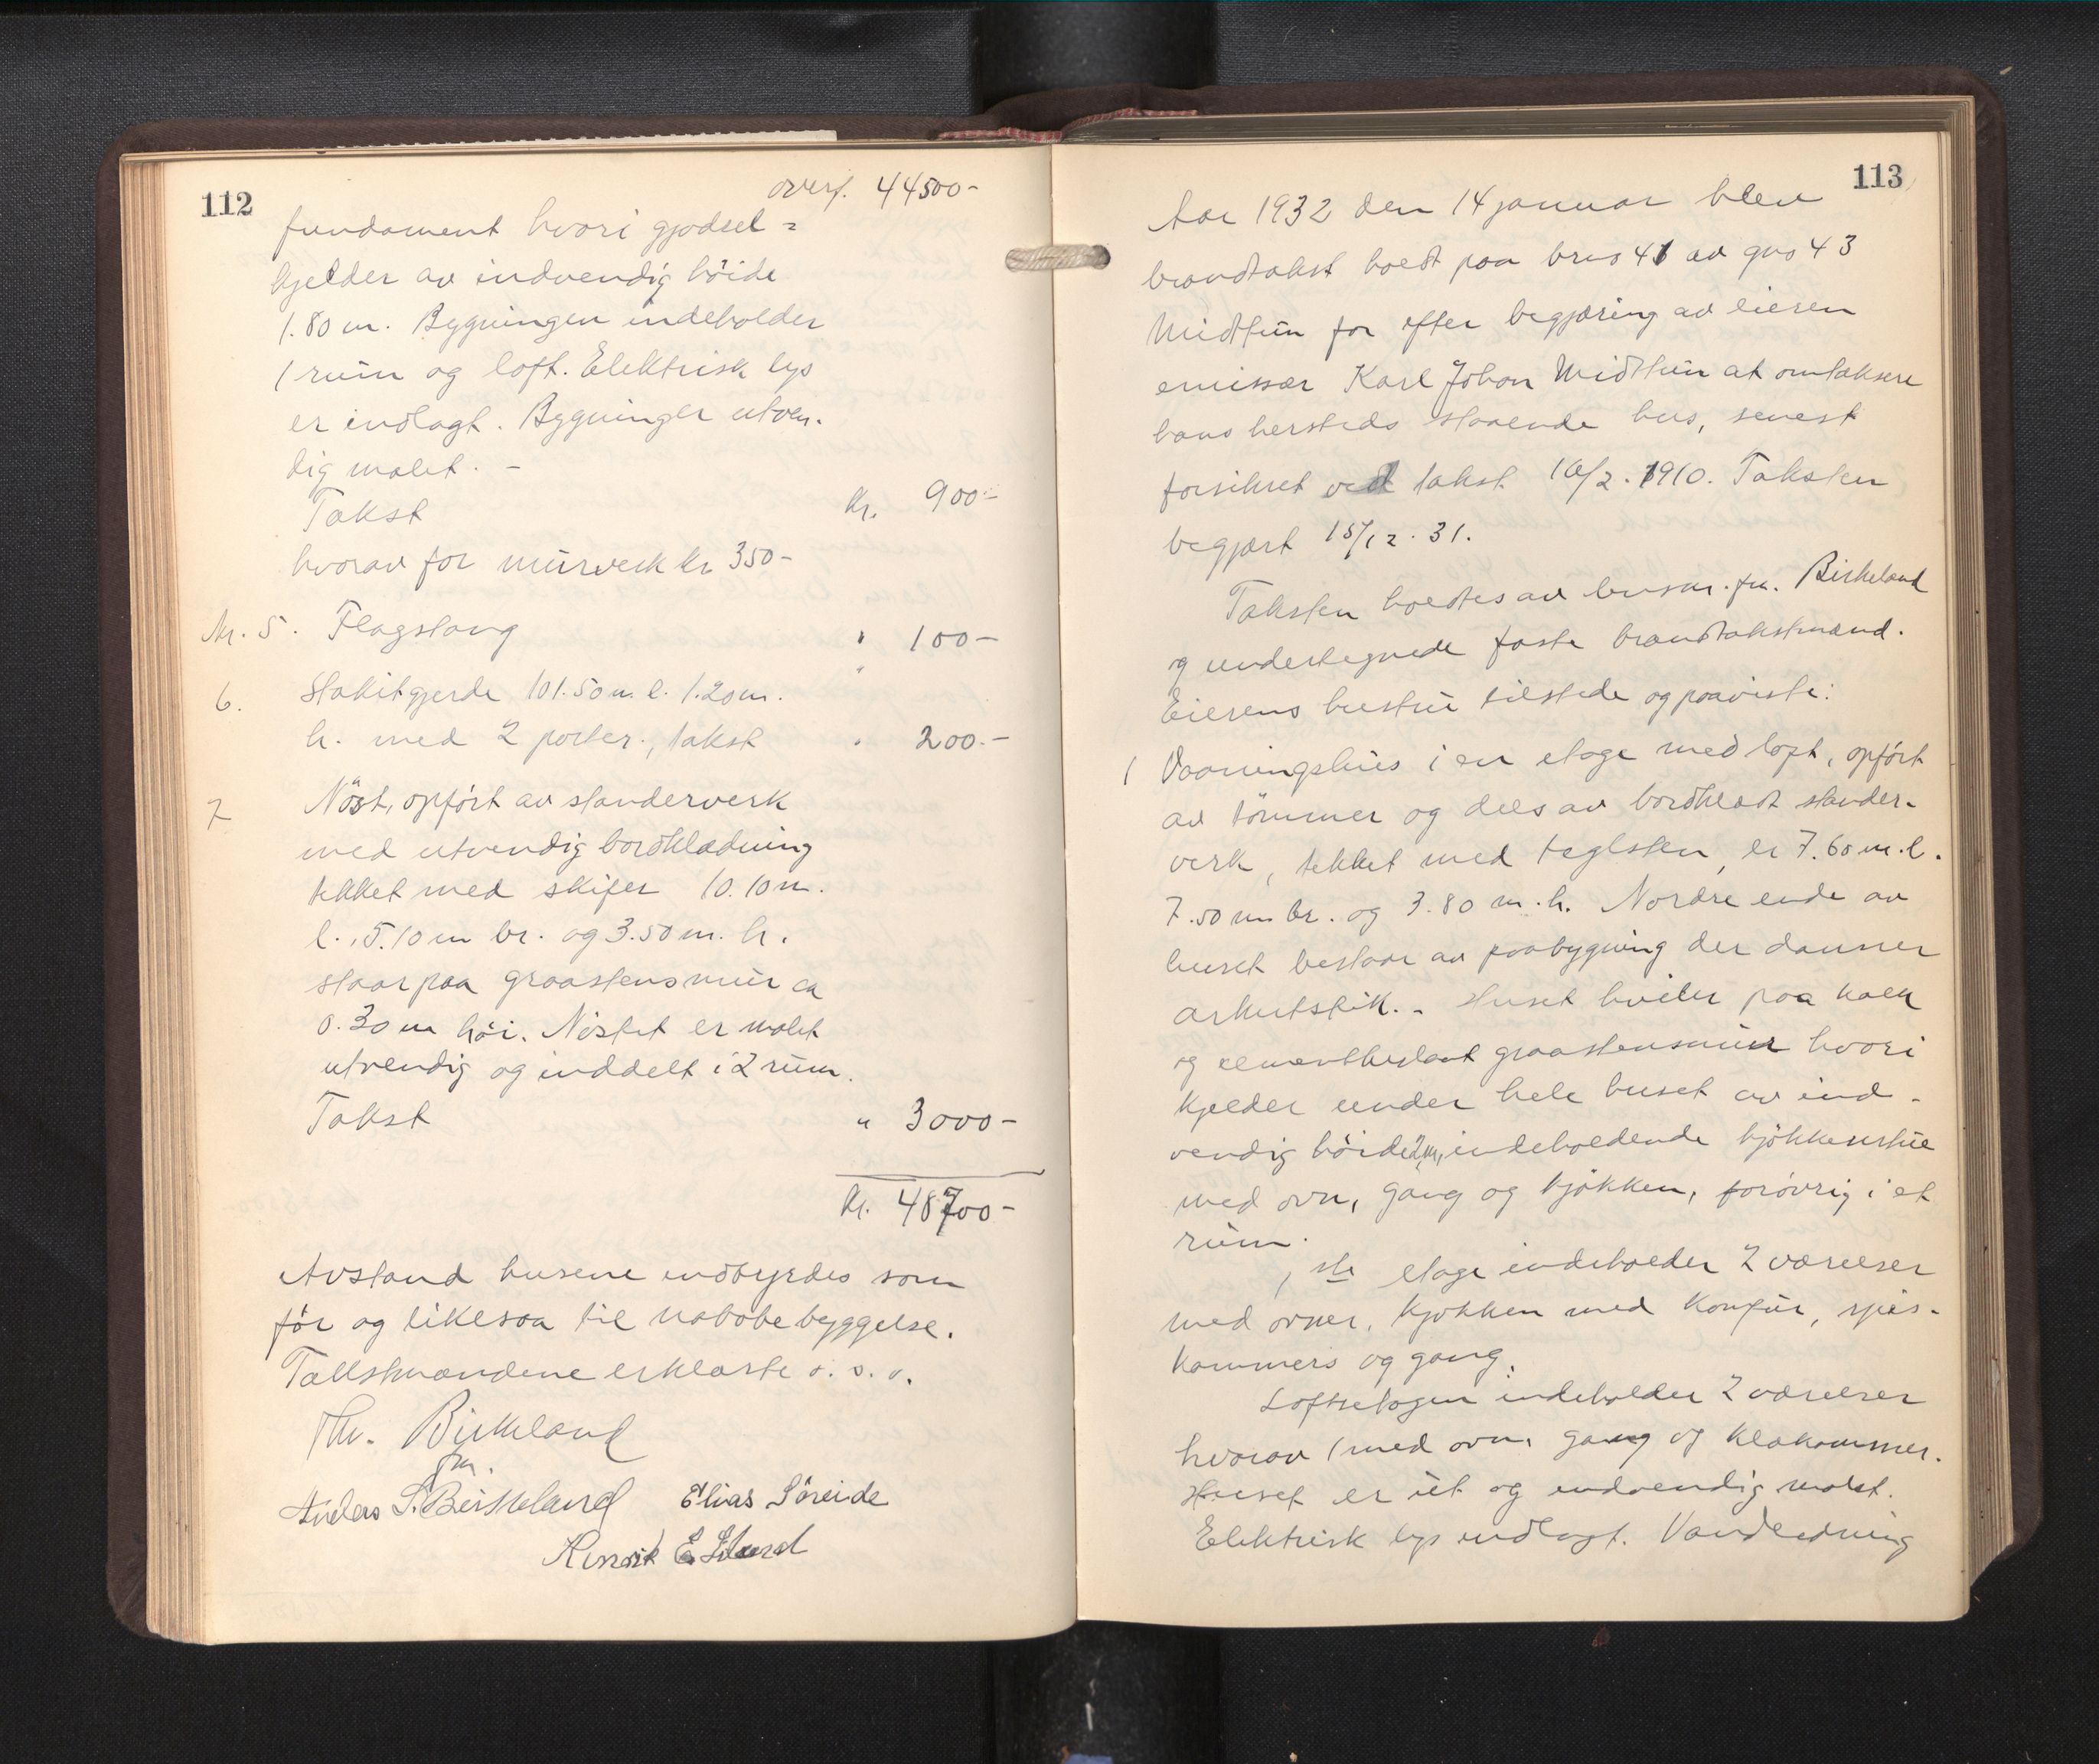 112
overf. 44500-
fundament hvori gjødsel =
kjelder av indvendig höide
1.80 m. Bygningen indeholder
1 rüm og loft. Elektrisk lys
er indlagt. Bygninger utven-
dig malet. -
Takst kr. 900-
hvorav for mürverk kr 350-
Nr. 5. Flagstang " 100-
6. Stakitgjerde 101.50 m. l. 1.20 m.
h. med 2 porter, takst " 200.-
7 Nöst, opfört av standerverk
med utvendig bordklædning
tekket med skifer 10.10 m.
l., 5.10 m br. og 3.50 m. h.
staar paa graastensmür ca
0.30 m höi. Nöstet er malet
utvendig og inddelt i 2 rüm.
Takst " 3000-
kr. 48700-
Avstand husene indbyrdes som
för og likesaa til nabobebyggelse.
Takstmændene erklærte o. s. v.
Th. Birkeland
fm.
Anders S. Birkeland Elias Söreide
Henrik E.
113
Aar 1932 den 14 januar blev
brandtakst holdt paa brno 41 av gno 43
Midttün for efter begjæring av eieren
emissær Karl Johan Midttün at omtaksere
hans hersteds staaende hus, senest
forsikret ved takst 16/2. 1910. Taksten
begjært 15/12. 31.
Taksten holdtes av lensm. fm. Birkeland
og undertegnede faste brandtakstmænd.
Eierens hustrü tilstede og paaviste:
1 Vaaningshüs i en etage med loft, opfört
av tömmer og dels av bordklædt stander-
verk, tekket med teglsten, er 7.60 m. l.
7.50 m br. og 3.80 m. h. Nordre ende av
huset bestaar av paabygning der danner
. - Huset hviler paa kalk
og cementbeslaat graastensmür hvori
kjelder under hele huset av ind-
vendig höide 2 m, indeholdende kjökkenstüe
med ovn, gang og kjökken, forövrig i et
rüm.
1ste etage indeholder 2 værelser
med ovner, kjökken med komfür, spis-
kammers og gang.
Loftsetagen indeholder 2 værelser
hvorav 1 med ovn, gang og klækammer.
Huset er üt og indvendig malet.
Elektrisk lys indlagt. Vandledning